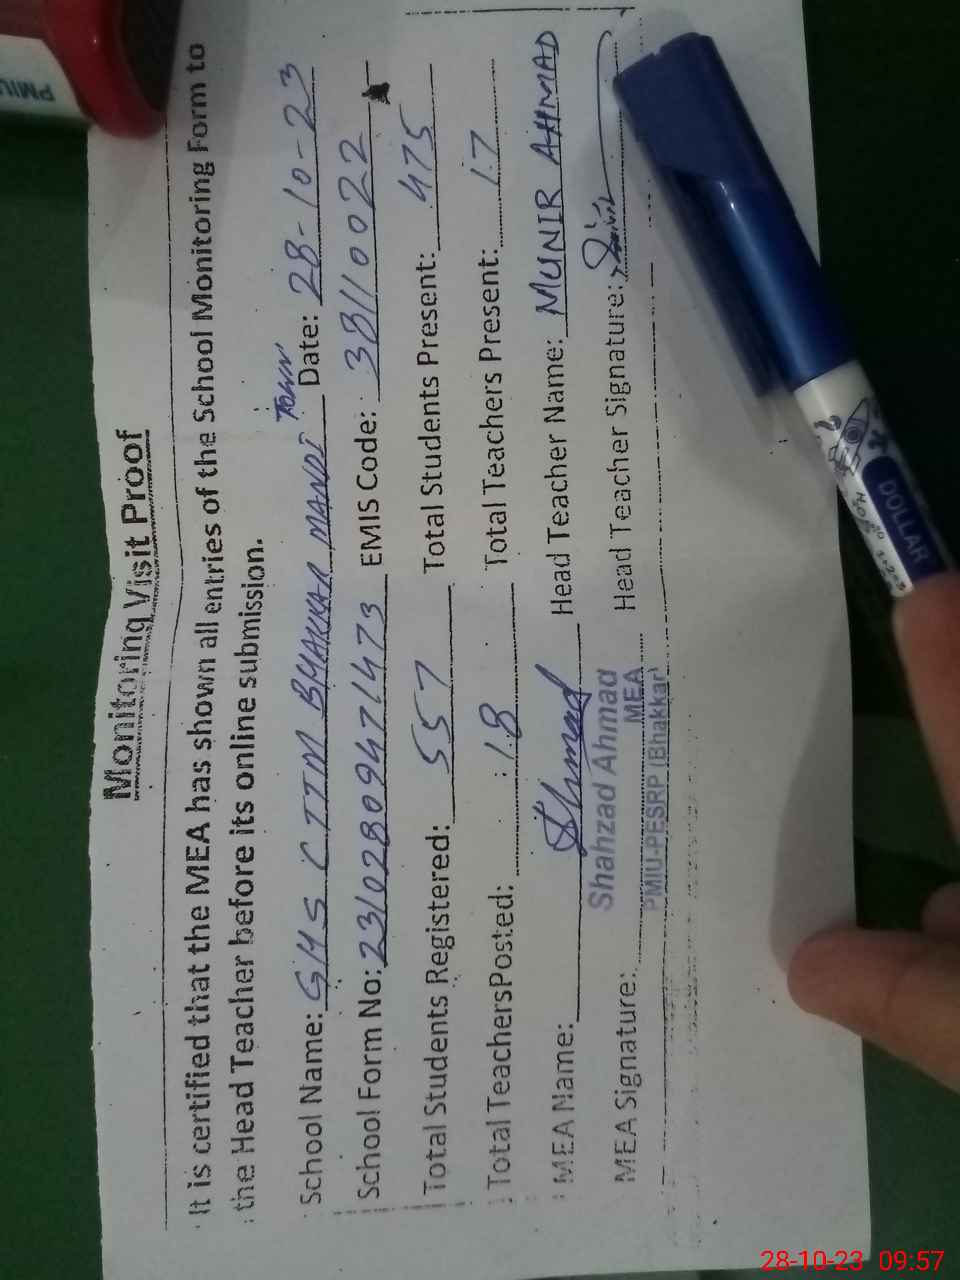 Monitoring Visit Proof
It is certified that the MEA has shown all entries of the School Monitoring Form to
the Head Teacher before its online submission.
School Name: GHS CTTM BHAKKAR MANDI TOWN Date: 28-10-23
School Form No: 23102809471473 EMIS Code: 38110022
Total Students Registered: 557 Total Students Present: 475
Total TeachersPosted: 18 Total Teachers Present: 17
MEA Name: Head Teacher Name: MUNIR AHMAD
Shahzad Ahmad
MEA Signature: MEA Head Teacher Signature:
PMIU-PESRP (Bhakkar)
PMIU
DOLLAR
28-10-23 09:57